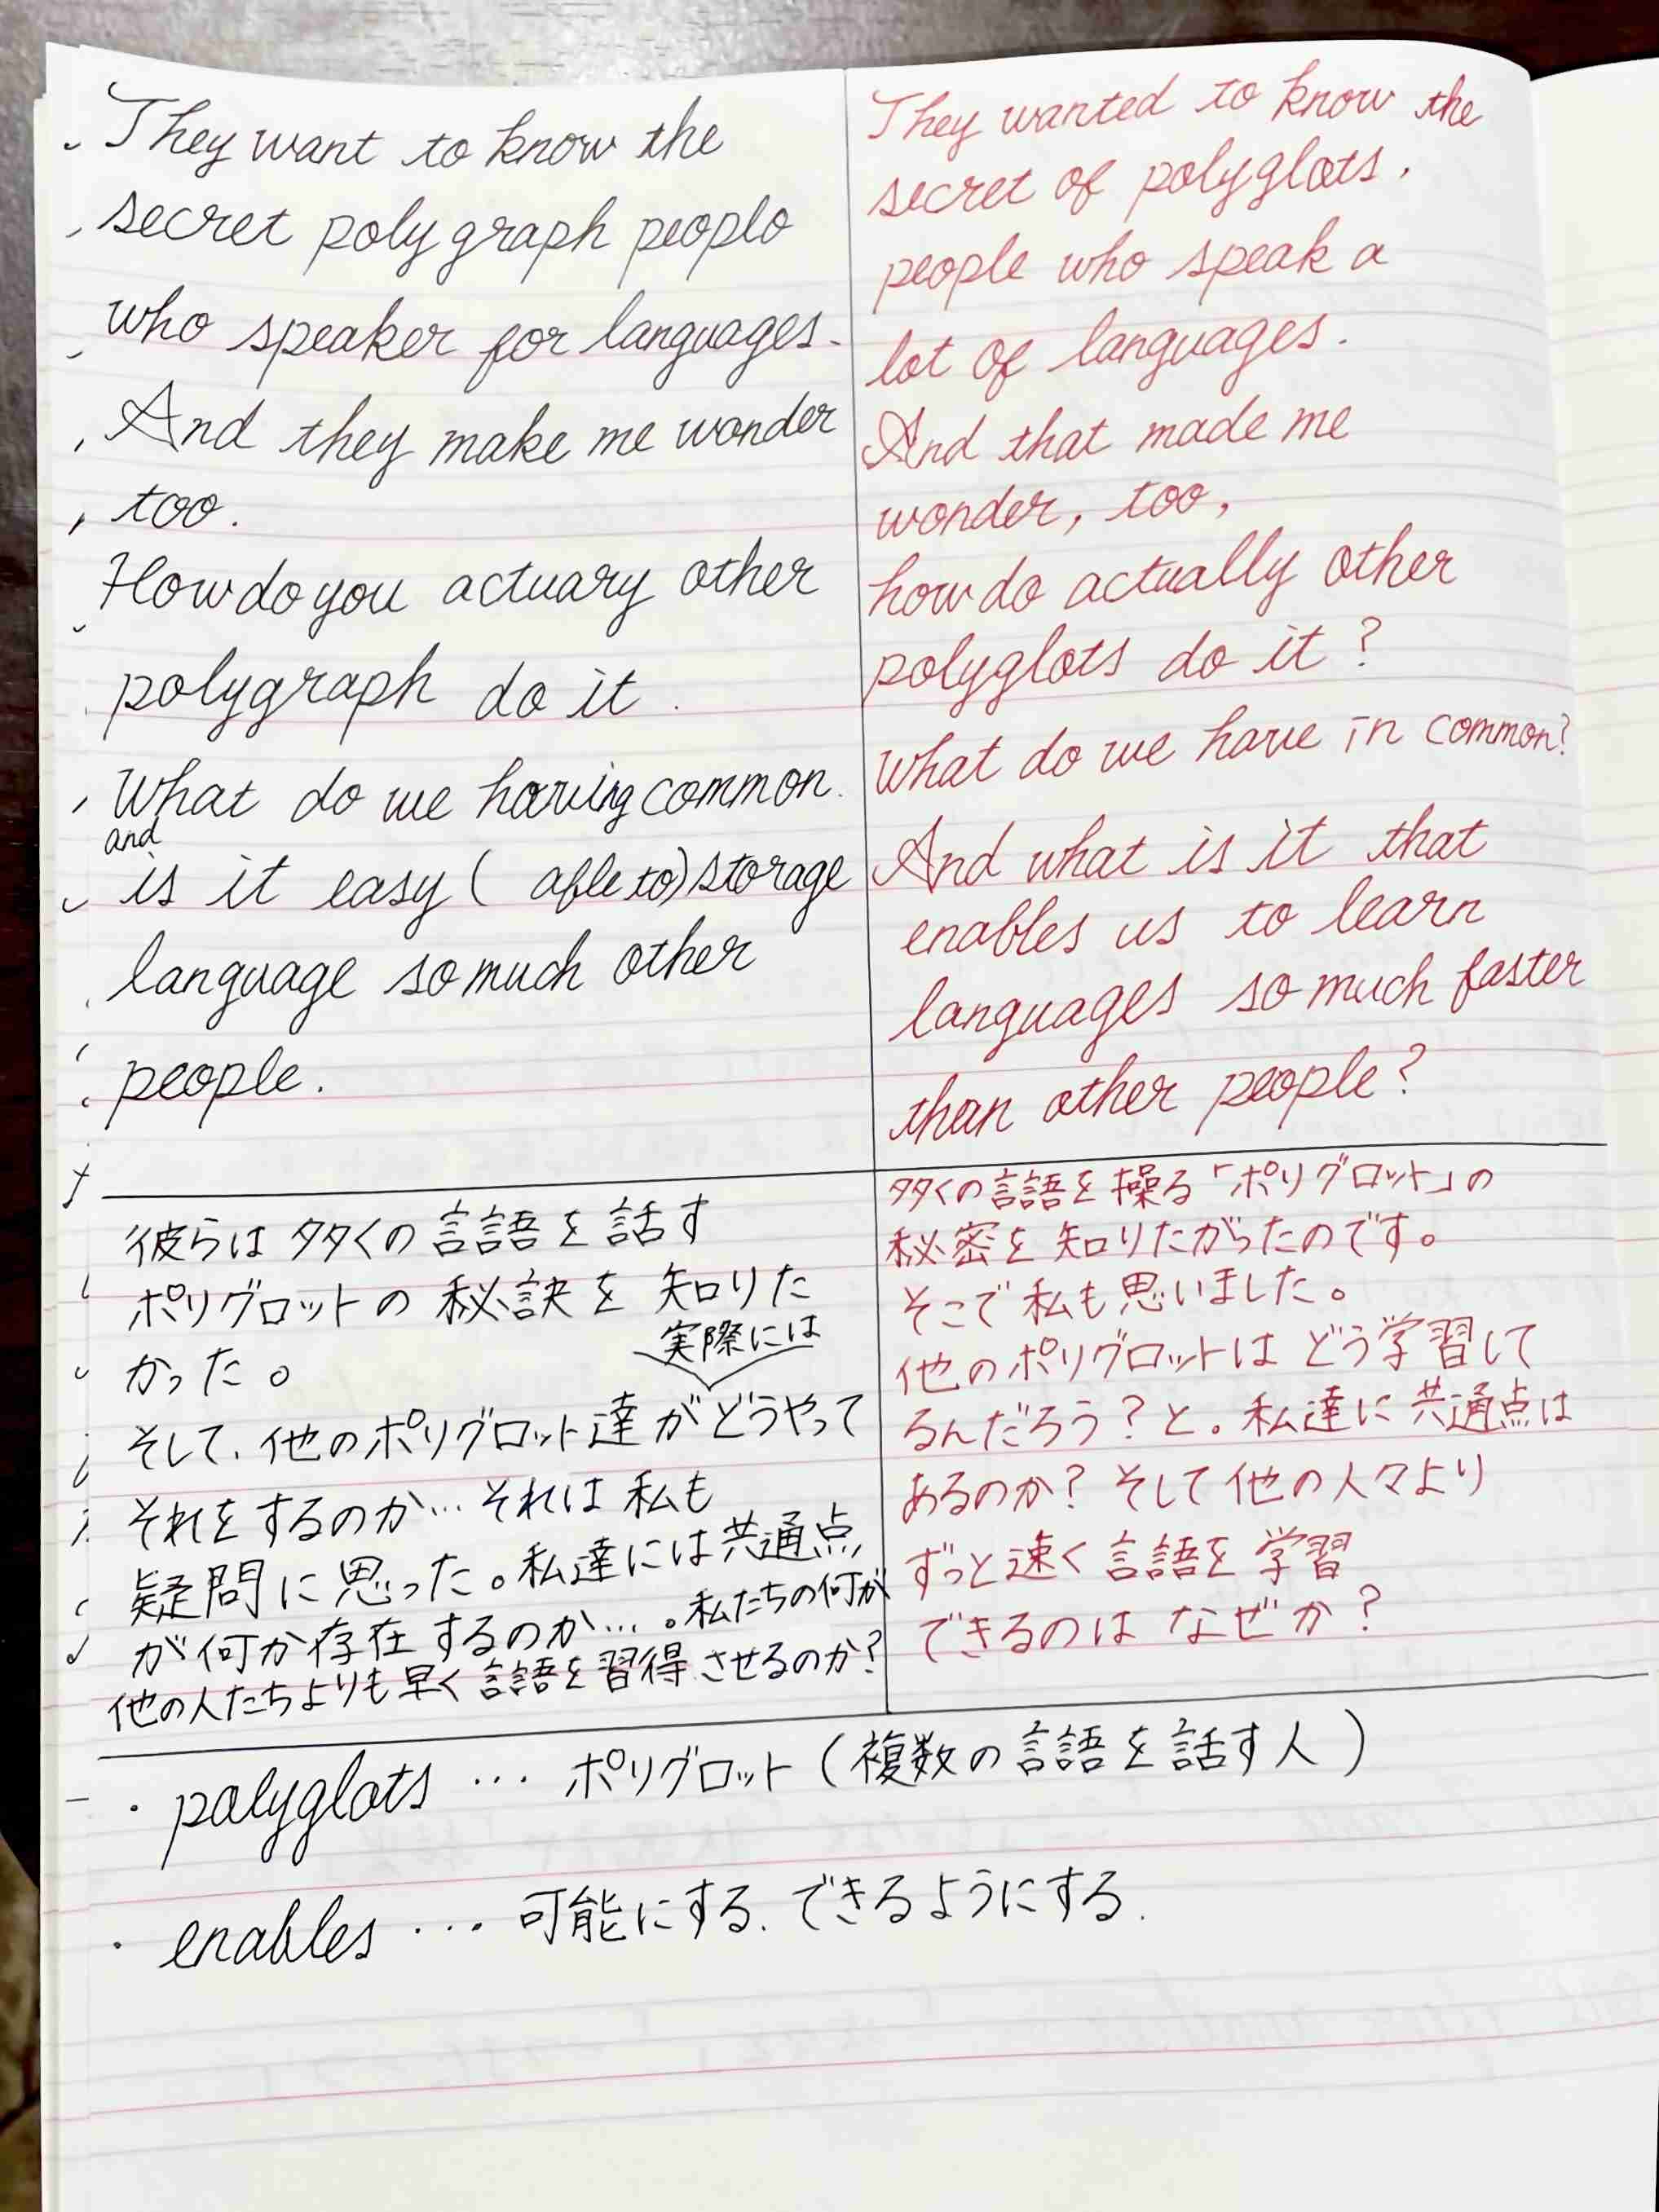 They want to know the
secret polygraph people
who speaker for languages.
And they make me wonder
too.
How do you actuary other
polygraph do it.
What do we having common.
and
is it easy (able to) storage
language so much other
people.
They wanted to know the
secret of polyglots,
people who speak a
lot of languages.
And that made me
wonder, too,
how do actually other
polyglots do it?
What do we have in common?
And what is it that
enables us to learn
languages so much faster
than other people?
彼らは多くの言語を話す
ポリグロットの秘訣を知りた
かった。
実際には
そして、他のポリグロット達がどうやって
それをするのか…それは私も
疑問に思った。私達には共通点
が何か存在するのか…。私たちの何が
他の人たちよりも早く言語を習得させるのか?
多くの言語を操る「ポリグロット」の
秘密を知りたがったのです。
そこで私も思いました。
他のポリグロットはどう学習して
るんだろう?と。私達に共通点は
あるのか?そして他の人々より
ずっと速く言語を学習
できるのはなぜか?
・polyglots … ポリグロット(複数の言語を話す人)
・enables … 可能にする、できるようにする.